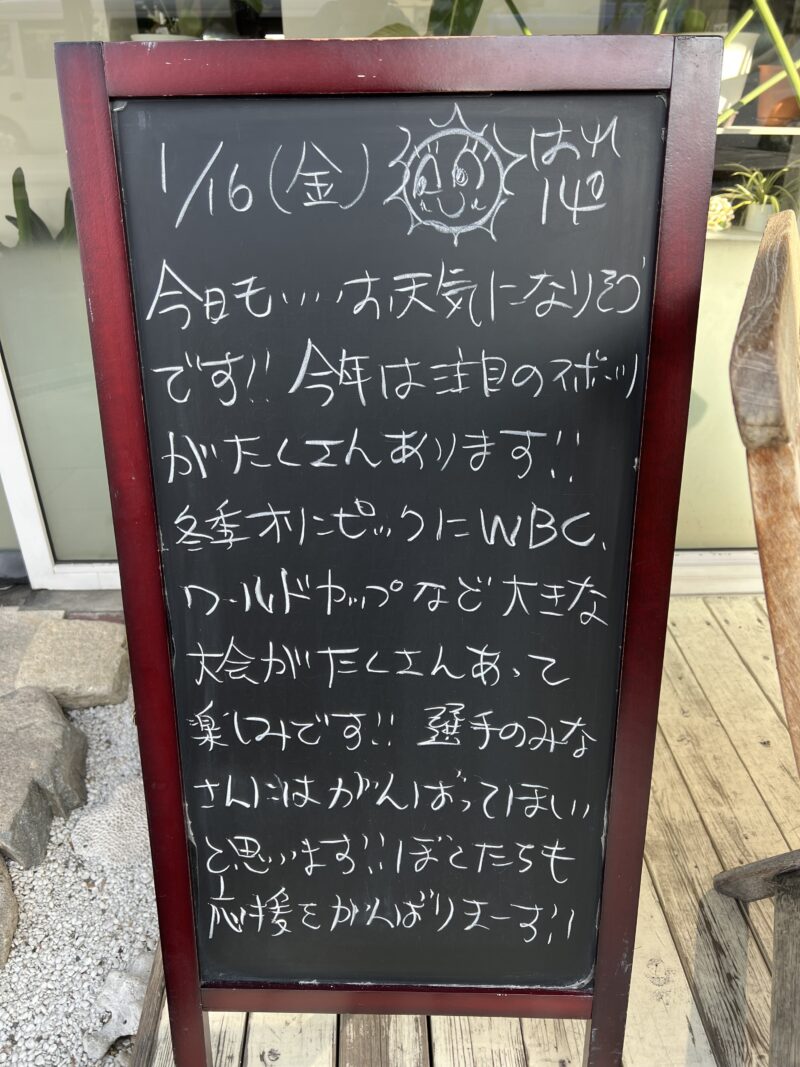 1/16(金) はれ
14°
今日も…お天気になりそう
です!! 今年は注目のスポーツ
がたくさんあります!!
冬季オリンピックにWBC、
ワールドカップなど大きな
大会がたくさんあって
楽しみです!! 選手のみな
さんにはがんばってほしい
と思います!! ぼくたちも
応援をがんばりまーす!!